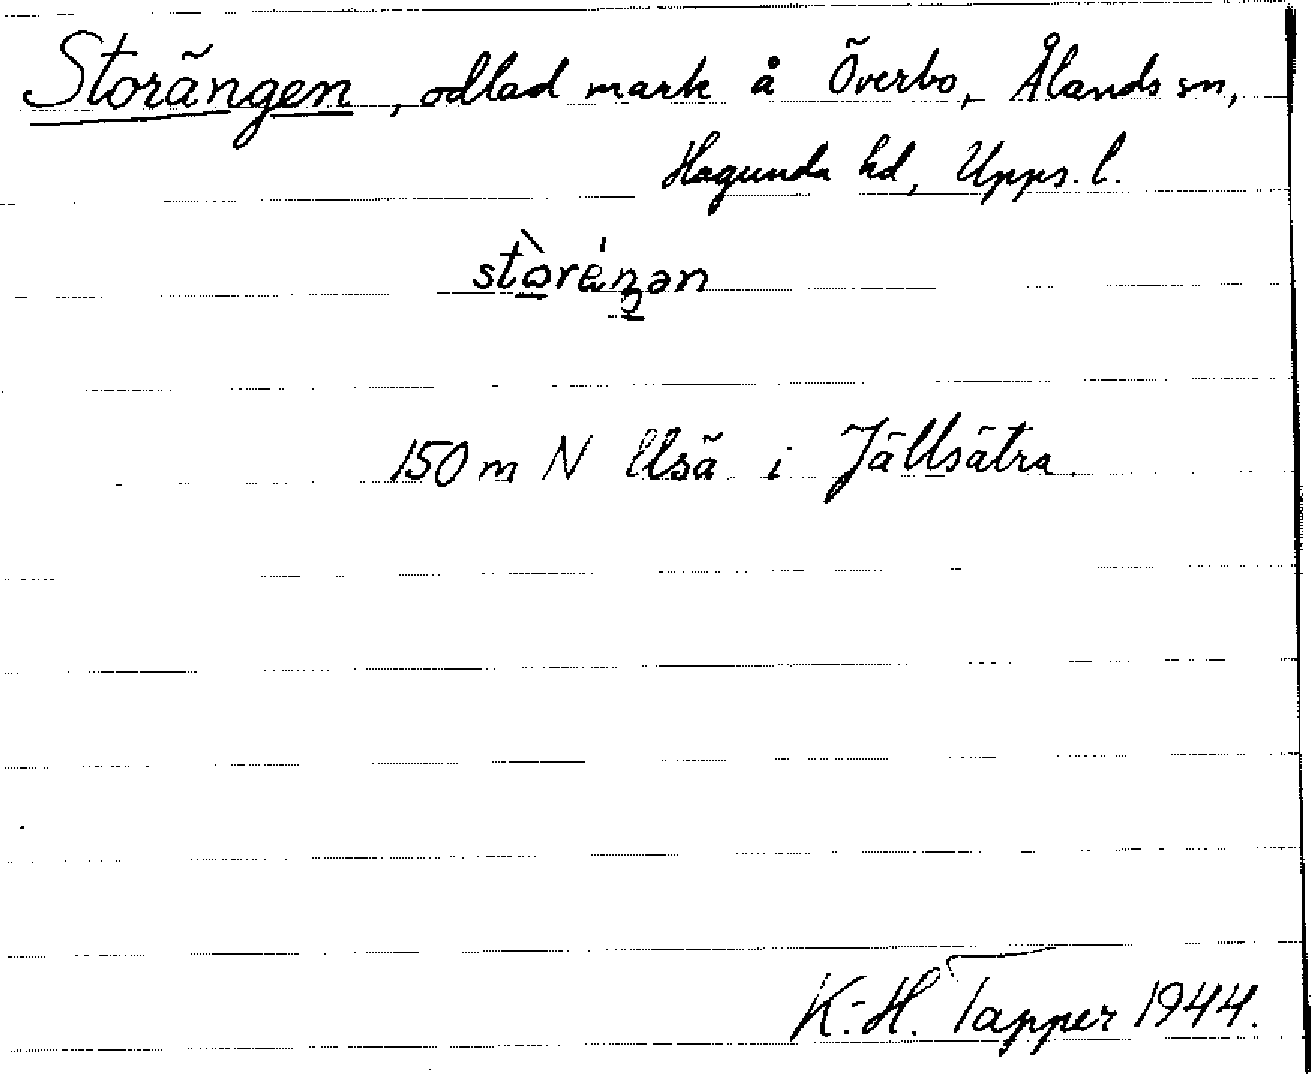 Storängen, odlad mark å Överbo, Ålands sn,
Hagunda hd, Upps. l.
stòréŋən
150 m N i Jällsätra.
K.-H. Tapper 1944.